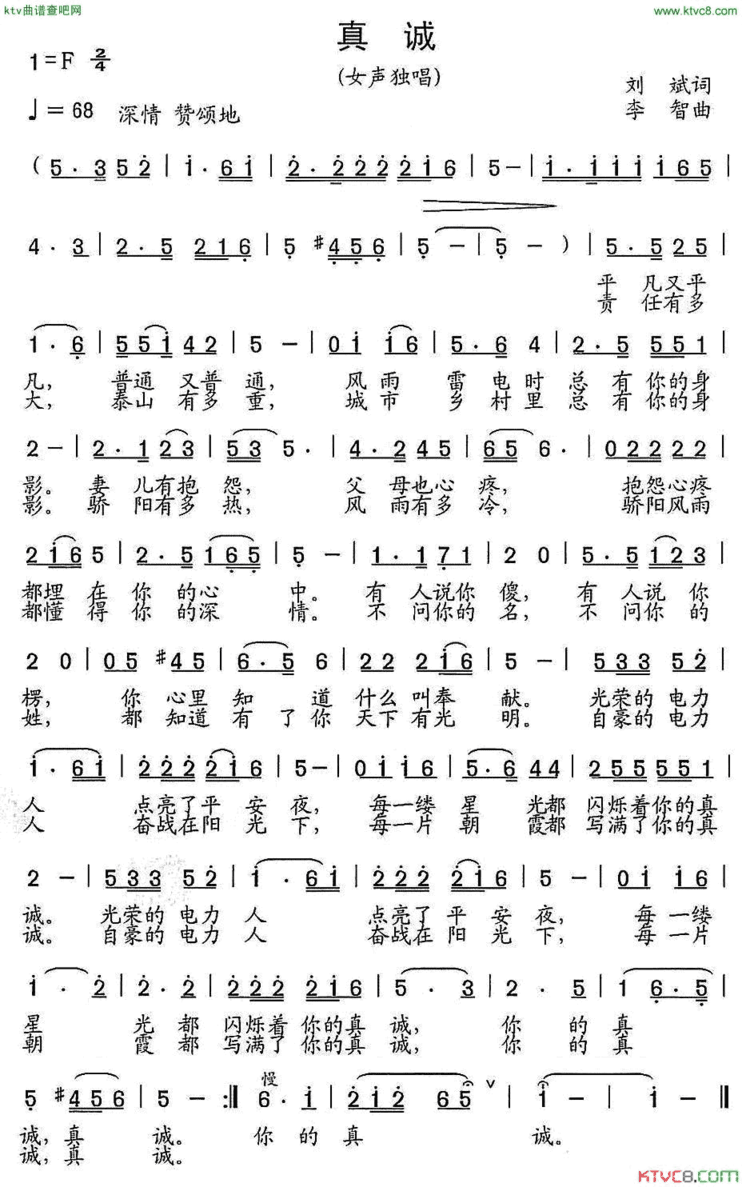 ktv曲谱查吧网
www.ktvc8.com
真 诚
(女声独唱)
1=F 2/4
刘 斌词
李 智曲
♩=68 深情 赞颂地
( 5·3 52 | 1·61 | 2·222216 | 5- | 1·111165 |
4·3 | 2·5 216 | 5 #456 | 5 - | 5 - ) | 5·525 |
平 凡又平
责 任有多
1·6 | 551 42 | 5 - | 01 16 | 5·6 4 | 2·5 551 |
凡, 普通 又普 通, 风雨 雷 电时 总 有 你的身
大, 泰山 有多 重, 城市 乡 村里 总 有 你的身
2- | 2·1 23 | 53 5· | 4·245 | 65 6· | 02222 |
影。 妻 儿有抱 怨, 父 母也心 疼, 抱怨心疼
影。 骄 阳有多 热, 风 雨有多 冷, 骄阳风雨
2165 | 2·5 165 | 5 - | 1·171 | 2 0 | 5·5 123 |
都埋 在 你 的心 中。 有 人说你 傻, 有 人说 你
都懂 得 你 的深 情。 不 问你的 名, 不 问你 的
2 0 | 05 #45 | 6·5 6 | 22 216 | 5 - | 533 52 |
楞, 你 心里 知 道 什么 叫奉 献。 光荣的 电力
姓, 都 知道 有 了 你 天下 有光 明。 自豪的 电力
1·61 | 222216 | 5- | 0116 | 5·6 44 | 255551 |
人 点亮了平 安夜, 每一缕 星 光都 闪烁着你的真
人 奋战在阳 光下, 每一片 朝 霞都 写满了你的真
2 - | 533 52 | 1·61 | 222 216 | 5 - | 01 16 |
诚。 光荣的 电力 人 点亮了 平 安夜, 每 一缕
诚。 自豪的 电力 人 奋战在 阳 光下, 每 一片
1·2 | 2·2 | 222 221 | 5·3 | 2· 5 | 1 6·5 |
星 光 都 闪烁着 你的真 诚, 你 的 真
朝 霞 都 写满了 你的真 诚, 你 的 真
5 #456 | 5 - :‖ 6·1 | 212 65 ∨ | 1 - | 1 - ‖
慢
诚,真 诚。 你 的 真 诚。
诚,真 诚。
KTVC8.COM